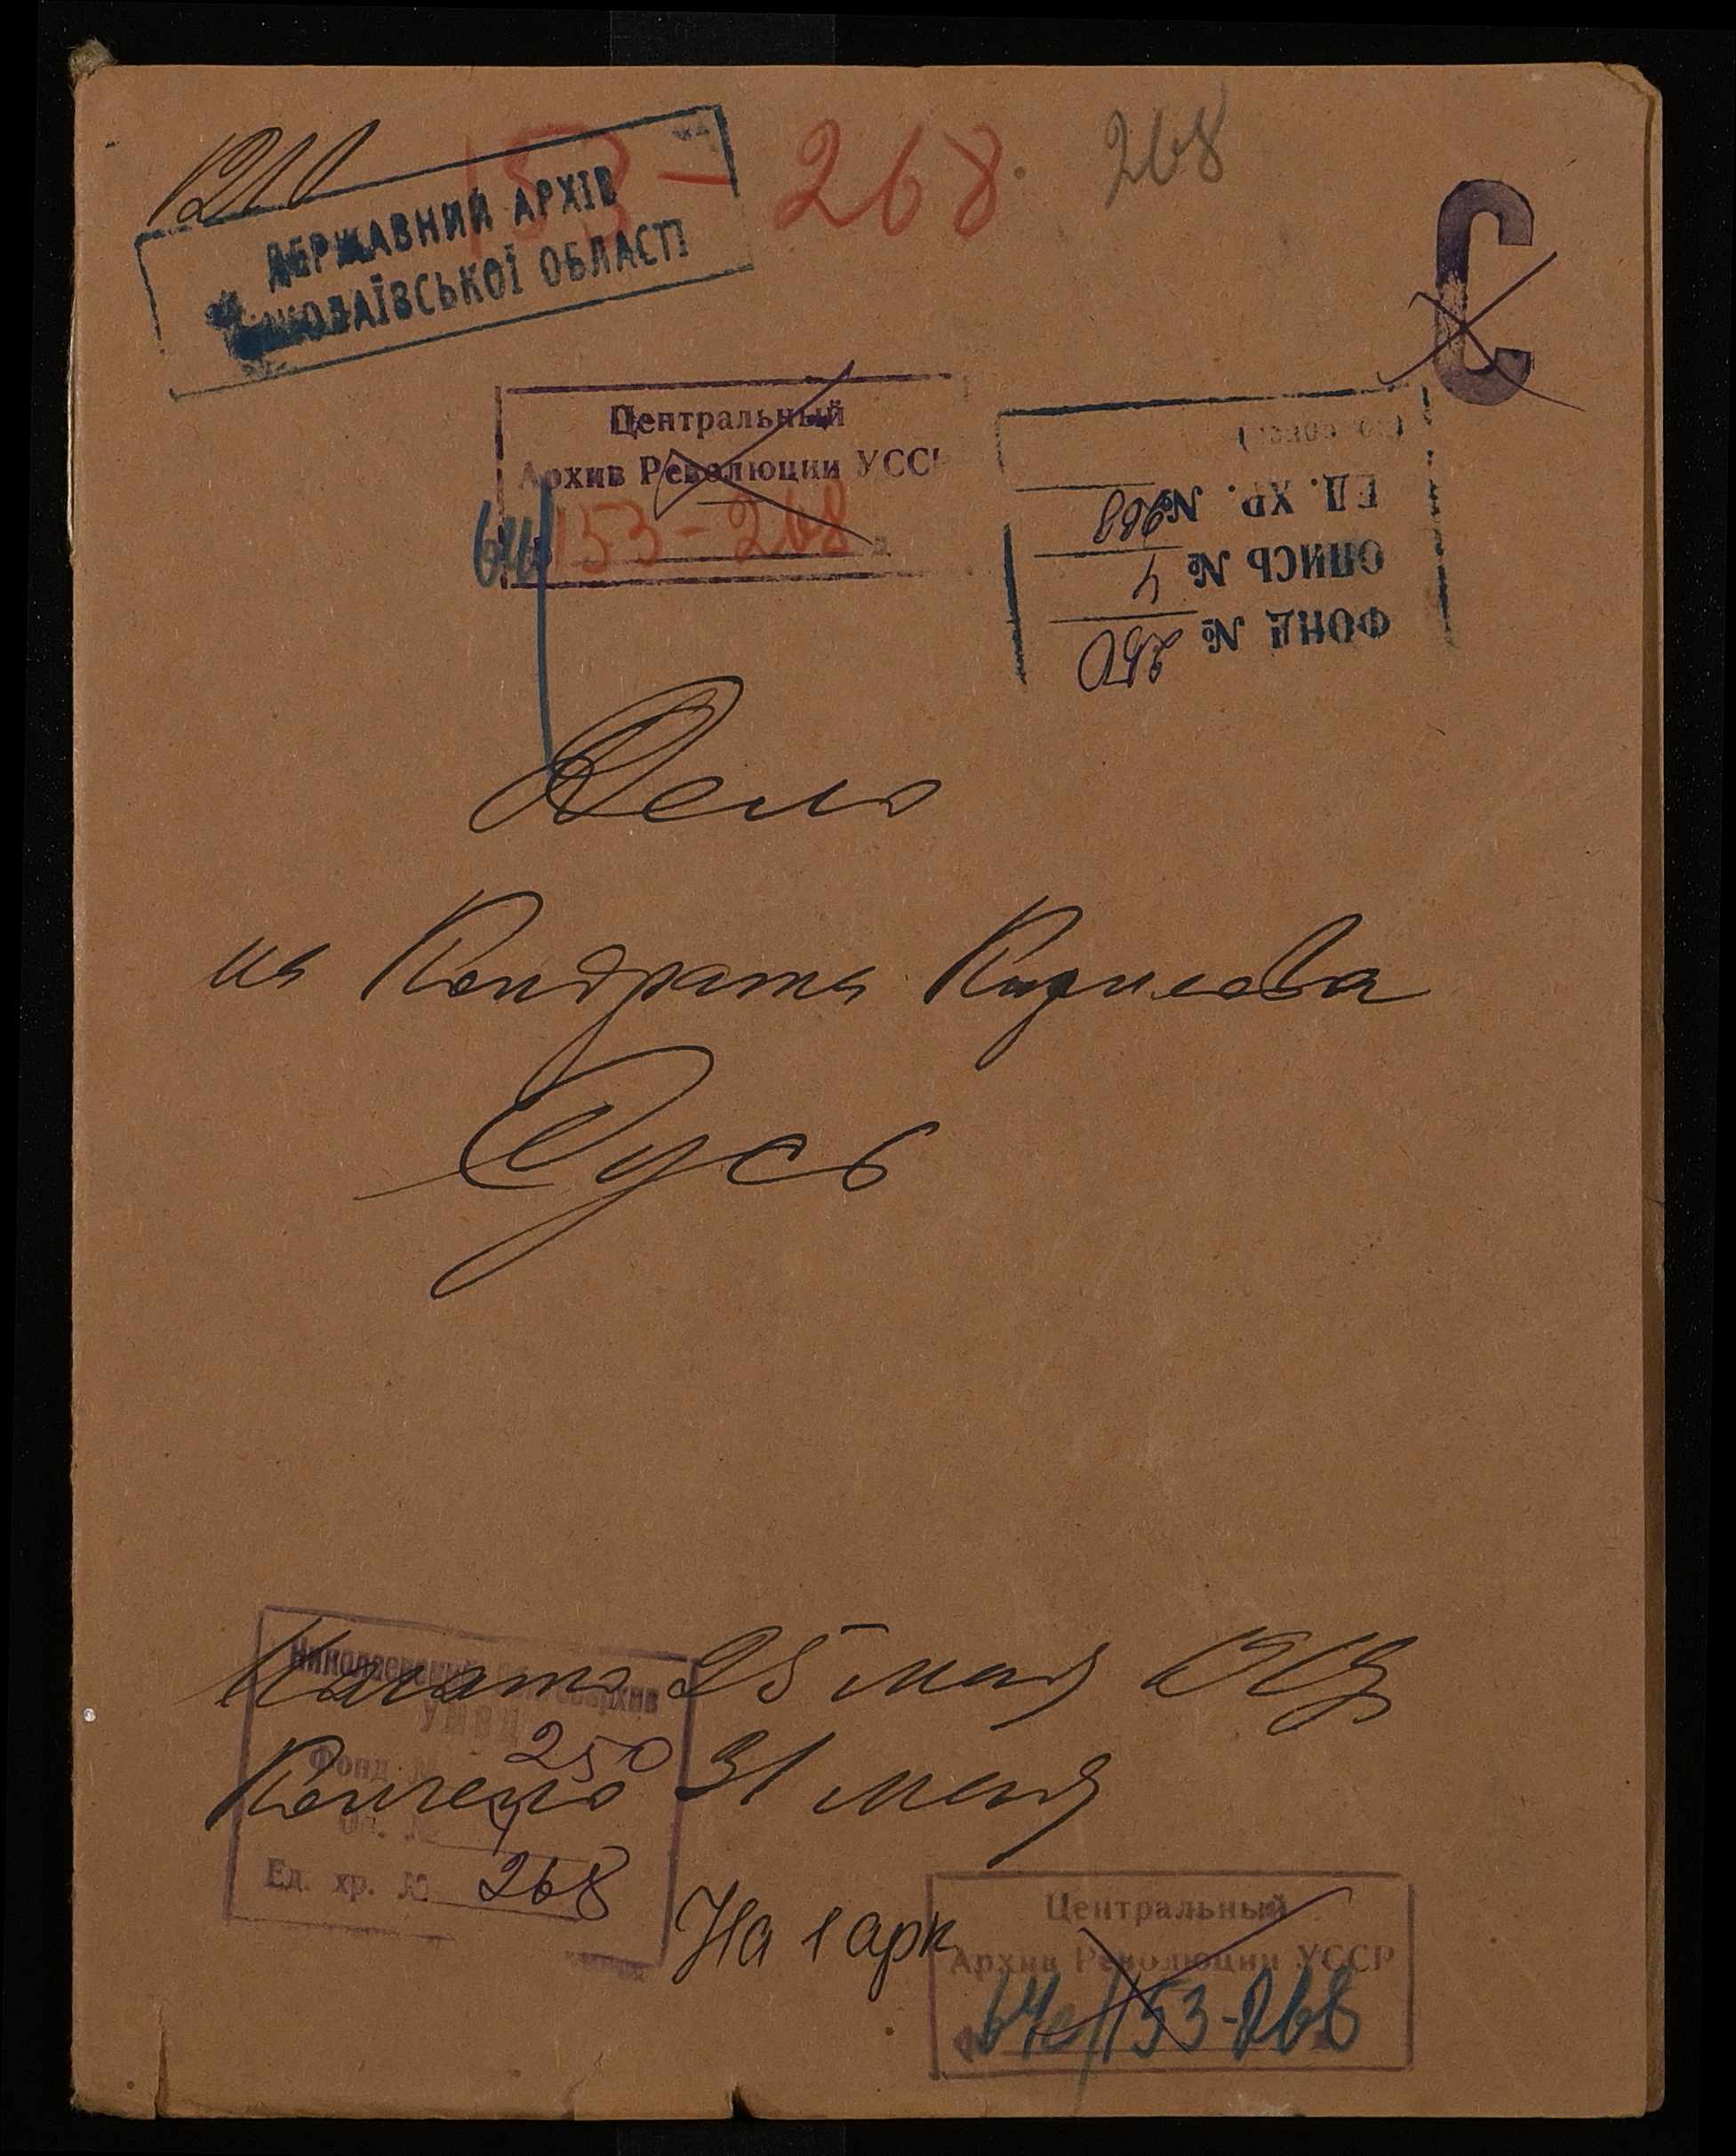 1210
153-268. 268
ДЕРЖАВНИЙ АРХІВ
МИКОЛАЇВСЬКОЇ ОБЛАСТІ
С
Центральный
Архив Революции УССР
64с/153-268
ФОНД № 250
ОПИСЬ № 4
ЕД. ХР. № 268
Дело
на Кондрата Кирилова
Гусь
Начато 25 мая
Кончено 31 мая
Николаевский
УМВД
Фонд № 250
Оп. № 4
Ед. хр. № 268
На 1 арк
Центральный
Архив Революции УССР
64с/153-268